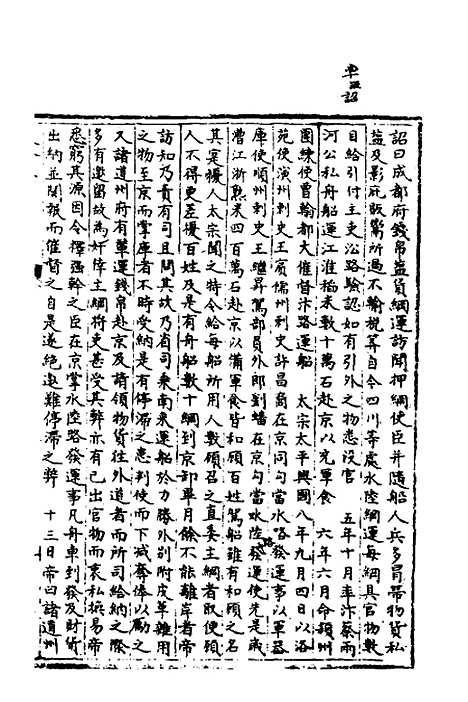 詔曰成都府錢帛鹽貨綱運訪聞押綱使臣并隨船人兵多冒帶物貨私
鹽及影庇販鬻所過不輸稅筭自今四川等處水陸綱運每綱具官物數
目給引付主吏沿路驗認如有引外之物悉沒官 五年十月率汴蔡兩
河公私舟船運江淮稻米數十萬石赴京以充軍食 六年六月命潁州
團練使曹翰都大催督汴路運船 太宗太平興國八年九月四日以洛
苑使演州刺史王賓儒州刺史許昌裔在京同勾當水路發運事以軍器
庫使順州刺史王繼昇駕部員外郎劉蟠在京勾當水陸發運使先是歲
漕江浙熟米四百萬石赴京以備軍食皆和顧百姓駕船雖有和顧之名
其實擾人太宗聞之特令給每船所用人數顧召之直委主綱者取便顧
人不得更差擾百姓及是有舟船數十綱到京卸畢月餘不能離岸者帝
訪知乃責有司且問其故乃省司乘南來運船於力勝外別附皮革雜用
之物至京而掌庫者不時受納是有停滯之悉判使而下減奪俸以勵之
又諸道州府有單運錢帛赴京及請領物貨往外道者而所司給納之際
多有邀留故為奸倖主綱將吏甚受其弊亦有已出官物而衷私換易帝
悉窮其源因令擇強幹之臣在京掌水陸路發運事凡舟車到發及財貨
出納並關報而催督之自是遂絕邀難停滯之弊 十三日帝曰諸道州